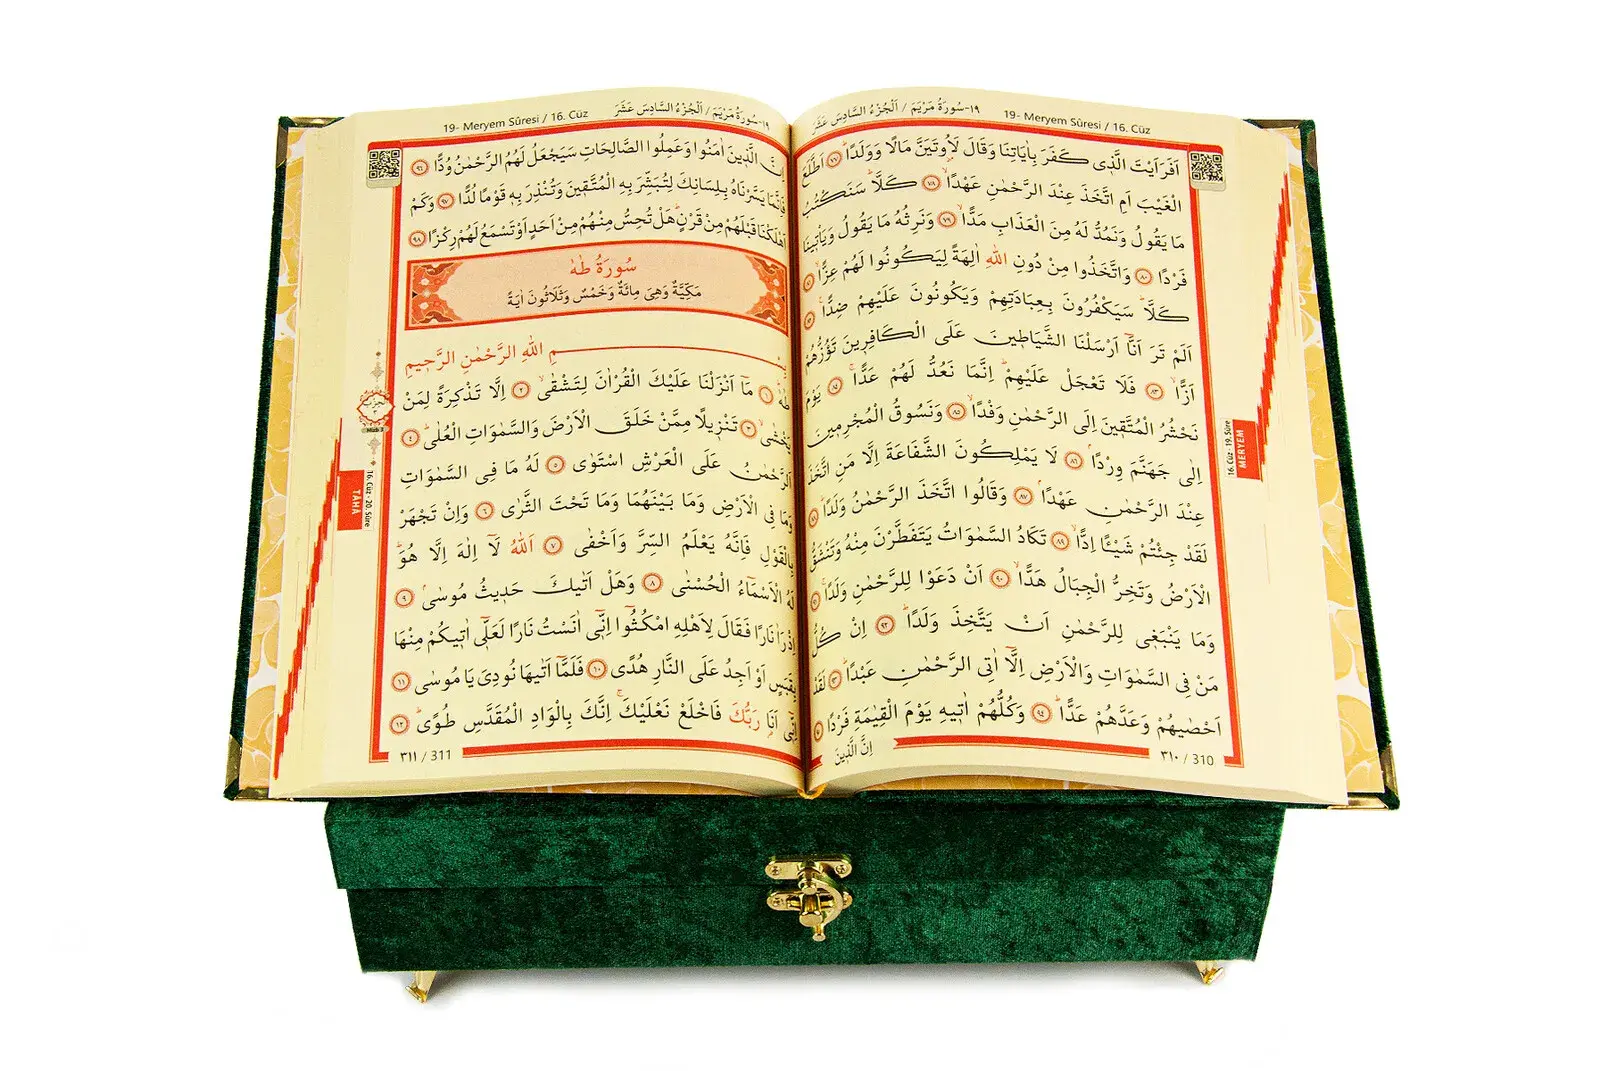 19- Meryem Sûresi / 16. Cüz
١٩-سُورَةُ مَرْيَمَ / اَلْجُزْءُ السَّادِسَ عَشَرَ
اَفَرَاَيْتَ الَّذ۪ي كَفَرَ بِاٰيَاتِنَا وَقَالَ لَاُو۫تَيَنَّ مَالًا وَوَلَدًاۜ ﴿٧٧﴾ اَطَّلَعَ
الْغَيْبَ اَمِ اتَّخَذَ عِنْدَ الرَّحْمٰنِ عَهْدًاۙ ﴿٧٨﴾ كَلَّاۜ سَنَكْتُبُ
مَا يَقُولُ وَنَمُدُّ لَهُ مِنَ الْعَذَابِ مَدًّاۙ ﴿٧٩﴾ وَنَرِثُهُ مَا يَقُولُ وَيَأْت۪ينَا
فَرْدًا ﴿٨٠﴾ وَاتَّخَذُوا مِنْ دُونِ اللّٰهِ اٰلِهَةً لِيَكُونُوا لَهُمْ عِزًّاۙ ﴿٨١﴾
كَلَّاۜ سَيَكْفُرُونَ بِعِبَادَتِهِمْ وَيَكُونُونَ عَلَيْهِمْ ضِدًّا۟ ﴿٨٢﴾
اَلَمْ تَرَ اَنَّٓا اَرْسَلْنَا الشَّيَاط۪ينَ عَلَى الْكَافِر۪ينَ تَؤُزُّهُمْ
اَزًّاۙ ﴿٨٣﴾ فَلَا تَعْجَلْ عَلَيْهِمْۜ اِنَّمَا نَعُدُّ لَهُمْ عَدًّاۚ ﴿٨٤﴾ يَوْمَ
نَحْشُرُ الْمُتَّق۪ينَ اِلَى الرَّحْمٰنِ وَفْدًاۙ ﴿٨٥﴾ وَنَسُوقُ الْمُجْرِم۪ينَ
اِلٰى جَهَنَّمَ وِرْدًاۢ ﴿٨٦﴾ لَا يَمْلِكُونَ الشَّفَاعَةَ اِلَّا مَنِ اتَّخَذَ
عِنْدَ الرَّحْمٰنِ عَهْدًاۢ ﴿٨٧﴾ وَقَالُوا اتَّخَذَ الرَّحْمٰنُ وَلَدًاۜ ﴿٨٨﴾
لَقَدْ جِئْتُمْ شَيْـًٔا اِدًّاۙ ﴿٨٩﴾ تَكَادُ السَّمٰوَاتُ يَتَفَطَّرْنَ مِنْهُ وَتَنْشَقُّ
الْاَرْضُ وَتَخِرُّ الْجِبَالُ هَدًّاۙ ﴿٩٠﴾ اَنْ دَعَوْا لِلرَّحْمٰنِ وَلَدًاۚ ﴿٩١﴾
وَمَا يَنْبَغ۪ي لِلرَّحْمٰنِ اَنْ يَتَّخِذَ وَلَدًاۜ ﴿٩٢﴾ اِنْ كُلُّ
مَنْ فِي السَّمٰوَاتِ وَالْاَرْضِ اِلَّٓا اٰتِي الرَّحْمٰنِ عَبْدًاۜ ﴿٩٣﴾ لَقَدْ
اَحْصٰيهُمْ وَعَدَّهُمْ عَدًّاۜ ﴿٩٤﴾ وَكُلُّهُمْ اٰت۪يهِ يَوْمَ الْقِيٰمَةِ فَرْدًا ﴿٩٥﴾
اِنَّ الَّذ۪ينَ
٣١٠ / 310
16. Cüz - 19. Sûre
MERYEM
19- Meryem Sûresi / 16. Cüz
١٩-سُورَةُ مَرْيَمَ / اَلْجُزْءُ السَّادِسَ عَشَرَ
اِنَّ الَّذ۪ينَ اٰمَنُوا وَعَمِلُوا الصَّالِحَاتِ سَيَجْعَلُ لَهُمُ الرَّحْمٰنُ وُدًّا ﴿٩٦﴾
فَاِنَّمَا يَسَّرْنَاهُ بِلِسَانِكَ لِتُبَشِّرَ بِهِ الْمُتَّق۪ينَ وَتُنْذِرَ بِه۪ قَوْمًا لُدًّا ﴿٩٧﴾ وَكَمْ
اَهْلَكْنَا قَبْلَهُمْ مِنْ قَرْنٍۜ هَلْ تُحِسُّ مِنْهُمْ مِنْ اَحَدٍ اَوْ تَسْمَعُ لَهُمْ رِكْزًا ﴿٩٨﴾
سُورَةُ طٰهٰ
مَكِّيَّةٌ وَهِيَ مِائَةٌ وَخَمْسٌ وَثَلَاثُونَ اٰيَةً
بِسْمِ اللّٰهِ الرَّحْمٰنِ الرَّح۪يمِ
طٰهٰۜ ﴿١﴾ مَٓا اَنْزَلْنَا عَلَيْكَ الْقُرْاٰنَ لِتَشْقٰىۙ ﴿٢﴾ اِلَّا تَذْكِرَةً لِمَنْ
يَخْشٰىۙ ﴿٣﴾ تَنْز۪يلًا مِمَّنْ خَلَقَ الْاَرْضَ وَالسَّمٰوَاتِ الْعُلٰىۜ ﴿٤﴾
اَلرَّحْمٰنُ عَلَى الْعَرْشِ اسْتَوٰى ﴿٥﴾ لَهُ مَا فِي السَّمٰوَاتِ
وَمَا فِي الْاَرْضِ وَمَا بَيْنَهُمَا وَمَا تَحْتَ الثَّرٰى ﴿٦﴾ وَاِنْ تَجْهَرْ
بِالْقَوْلِ فَاِنَّهُ يَعْلَمُ السِّرَّ وَاَخْفٰى ﴿٧﴾ اَللّٰهُ لَٓا اِلٰهَ اِلَّا هُوَۜ
لَهُ الْاَسْمَٓاءُ الْحُسْنٰى ﴿٨﴾ وَهَلْ اَتٰيكَ حَد۪يثُ مُوسٰىۢ ﴿٩﴾
اِذْ رَاٰ نَارًا فَقَالَ لِاَهْلِهِ امْكُثُٓوا اِنّ۪ٓي اٰنَسْتُ نَارًا لَعَلّ۪ٓي اٰت۪يكُمْ مِنْهَا
بِقَبَسٍ اَوْ اَجِدُ عَلَى النَّارِ هُدًى ﴿١٠﴾ فَلَمَّٓا اَتٰيهَا نُودِيَ يَا مُوسٰى ﴿١١﴾
اِنّ۪ٓي اَنَا۬ رَبُّكَ فَاخْلَعْ نَعْلَيْكَۚ اِنَّكَ بِالْوَادِ الْمُقَدَّسِ طُوًىۜ ﴿١٢﴾
٣١١ / 311
16. Cüz - 20. Sûre
TÂHÂ